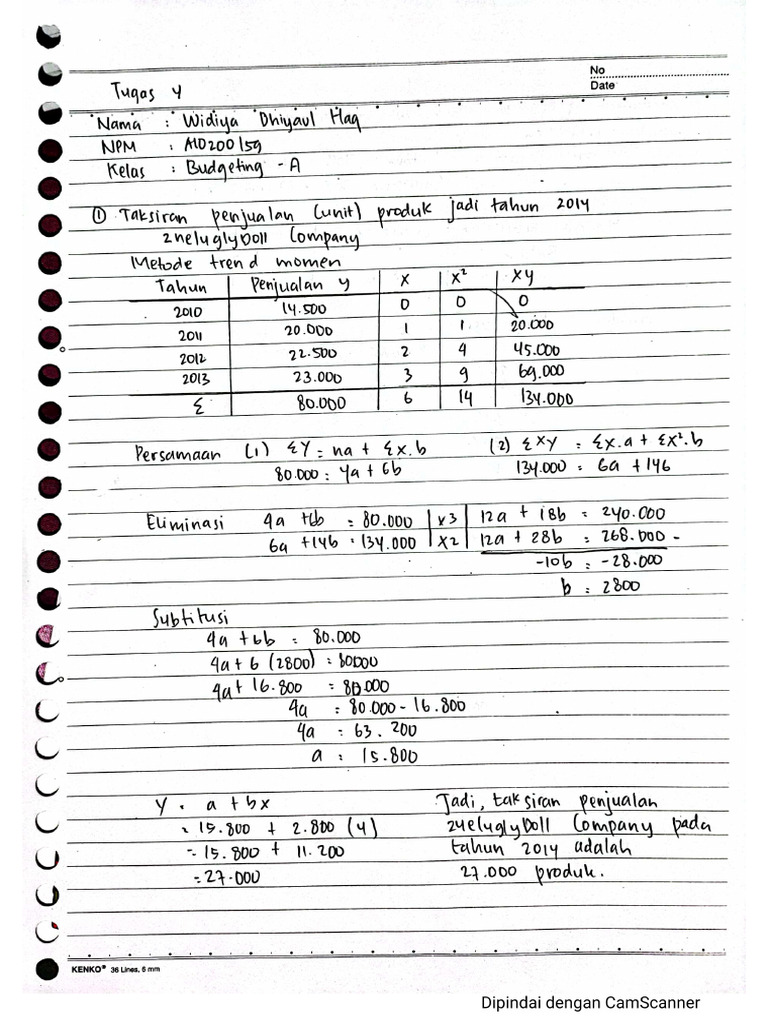 No
Date
Tugas 4
Nama : Widiya Dhiyaul Haq
NPM : A1D200159
Kelas : Budgeting - A
① Taksiran penjualan (unit) produk jadi tahun 2014
2neluglyDoll Company
Metode trend momen
Tahun Penjualan Y X X² XY
2010 14.500 0 0 0
2011 20.000 1 1 20.000
2012 22.500 2 4 45.000
2013 23.000 3 9 69.000
Σ 80.000 6 14 134.000
Persamaan (1) ΣY = na + Σx.b (2) ΣXY = Σx.a + Σx².b
80.000 = 4a + 6b 134.000 = 6a + 14b
Eliminasi 4a + 6b = 80.000 | x3 | 12a + 18b = 240.000
6a + 14b = 134.000 | x2 | 12a + 28b = 268.000 -
-10b = -28.000
b = 2800
Subtitusi
4a + 6b = 80.000
4a + 6 (2800) = 80000
4a + 16.800 = 80.000
4a = 80.000 - 16.800
4a = 63.200
a = 15.800
Y = a + bx Jadi, taksiran penjualan
= 15.800 + 2.800 (4) 24eluglyDoll Company pada
= 15.800 + 11.200 tahun 2014 adalah
= 27.000 27.000 produk.
KENKO® 36 Lines, 6 mm
Dipindai dengan CamScanner